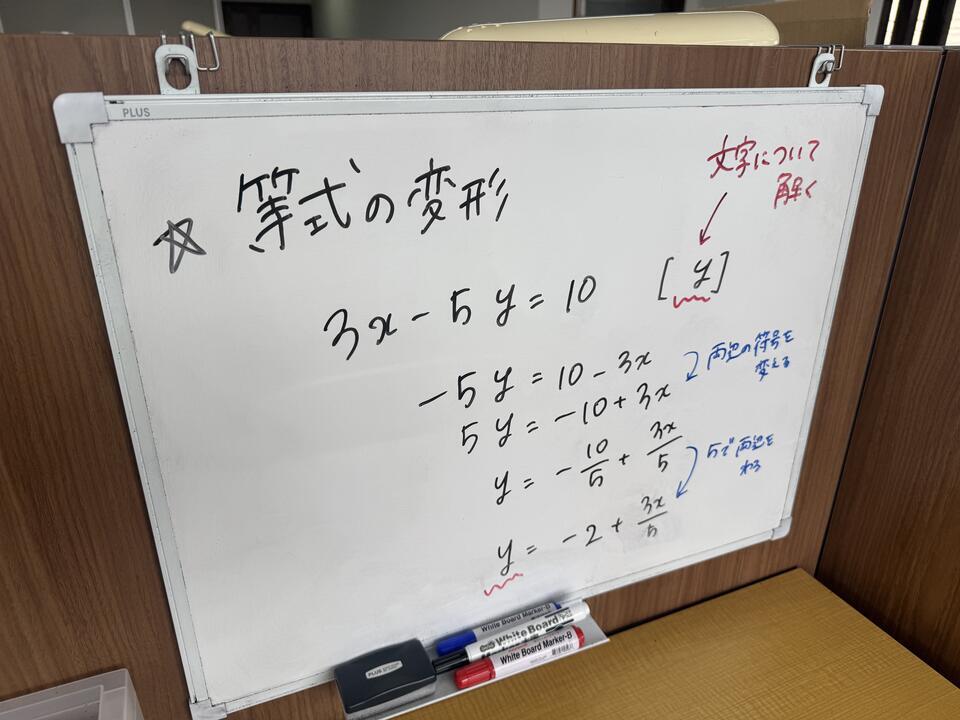 PLUS
☆ 等式の変形
文字について
解く
3x - 5y = 10 [y]
-5y = 10 - 3x
両辺の符号を
変える
5y = -10 + 3x
y = -10/5 + 3x/5
5で両辺を
わる
y = -2 + 3x/5
White Board Marker-B
White Board
White Board Marker-B
PLUS